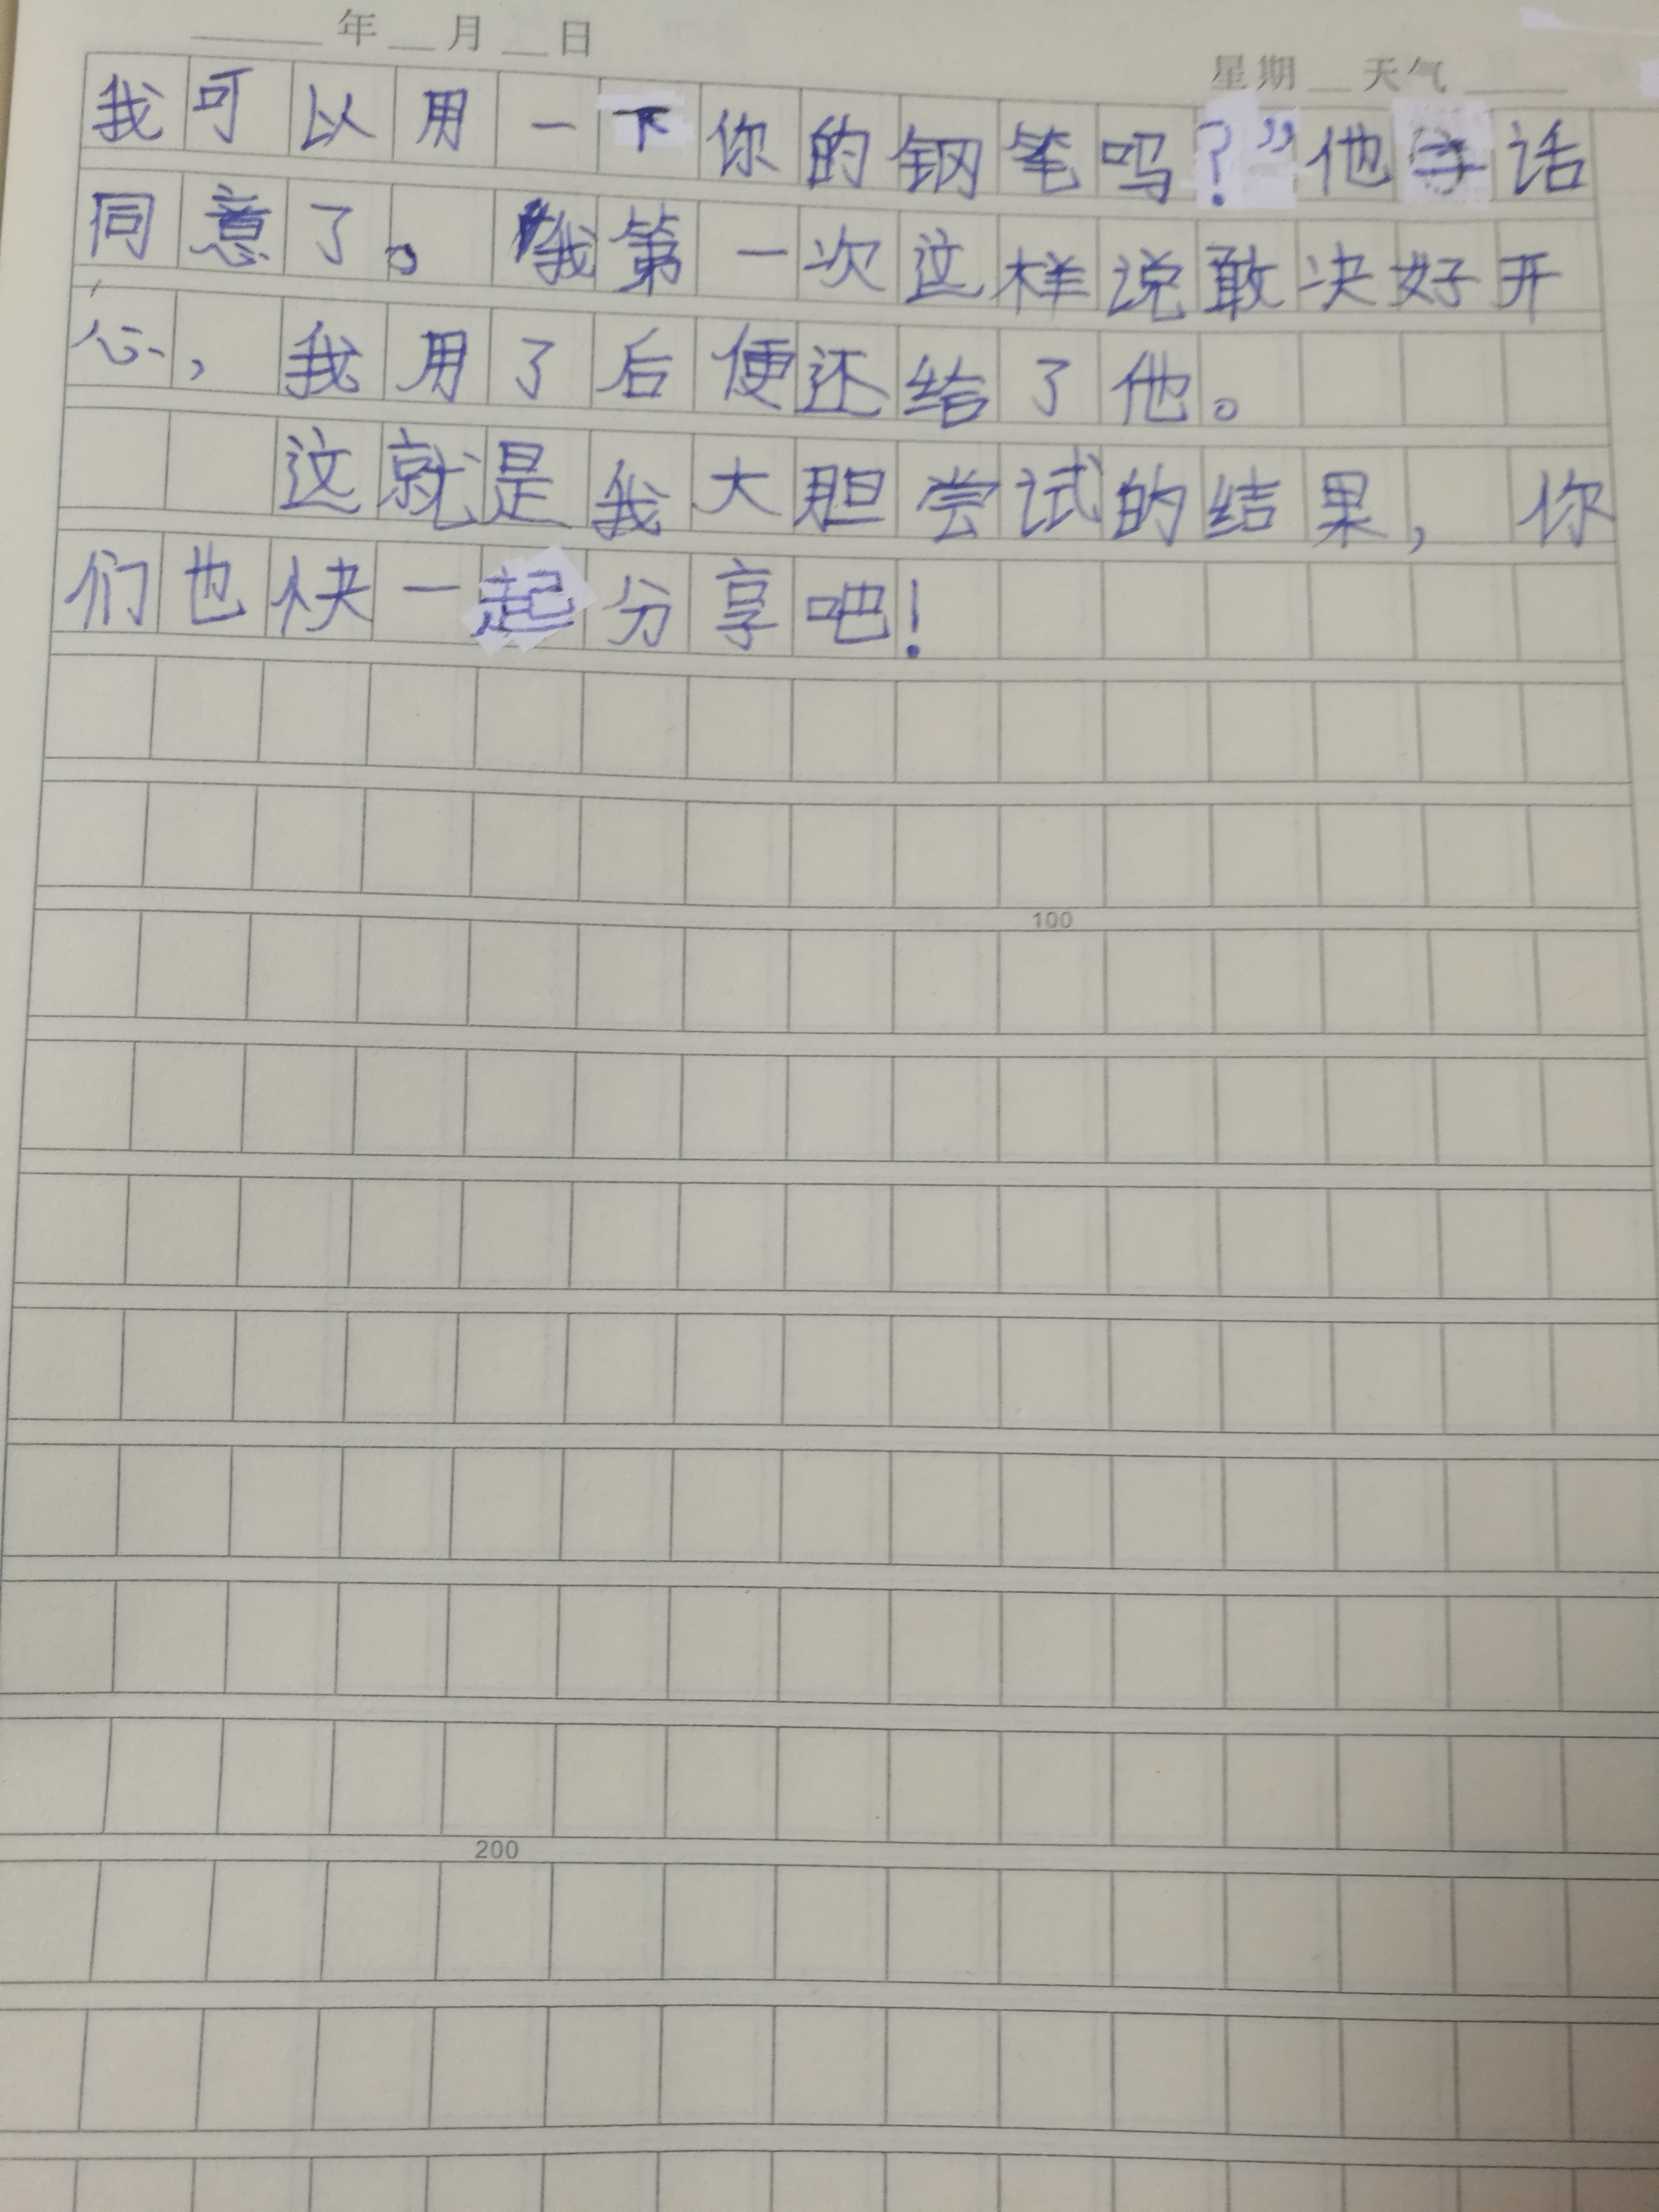 年 月 日
星期 天气
我可以用一下你的钢笔吗?”他 话
同意了。我第一次这样说敢决好开
心,我用了后便还给了他。
这就是我大胆尝试的结果,你
们也快一起分享吧!
100
200